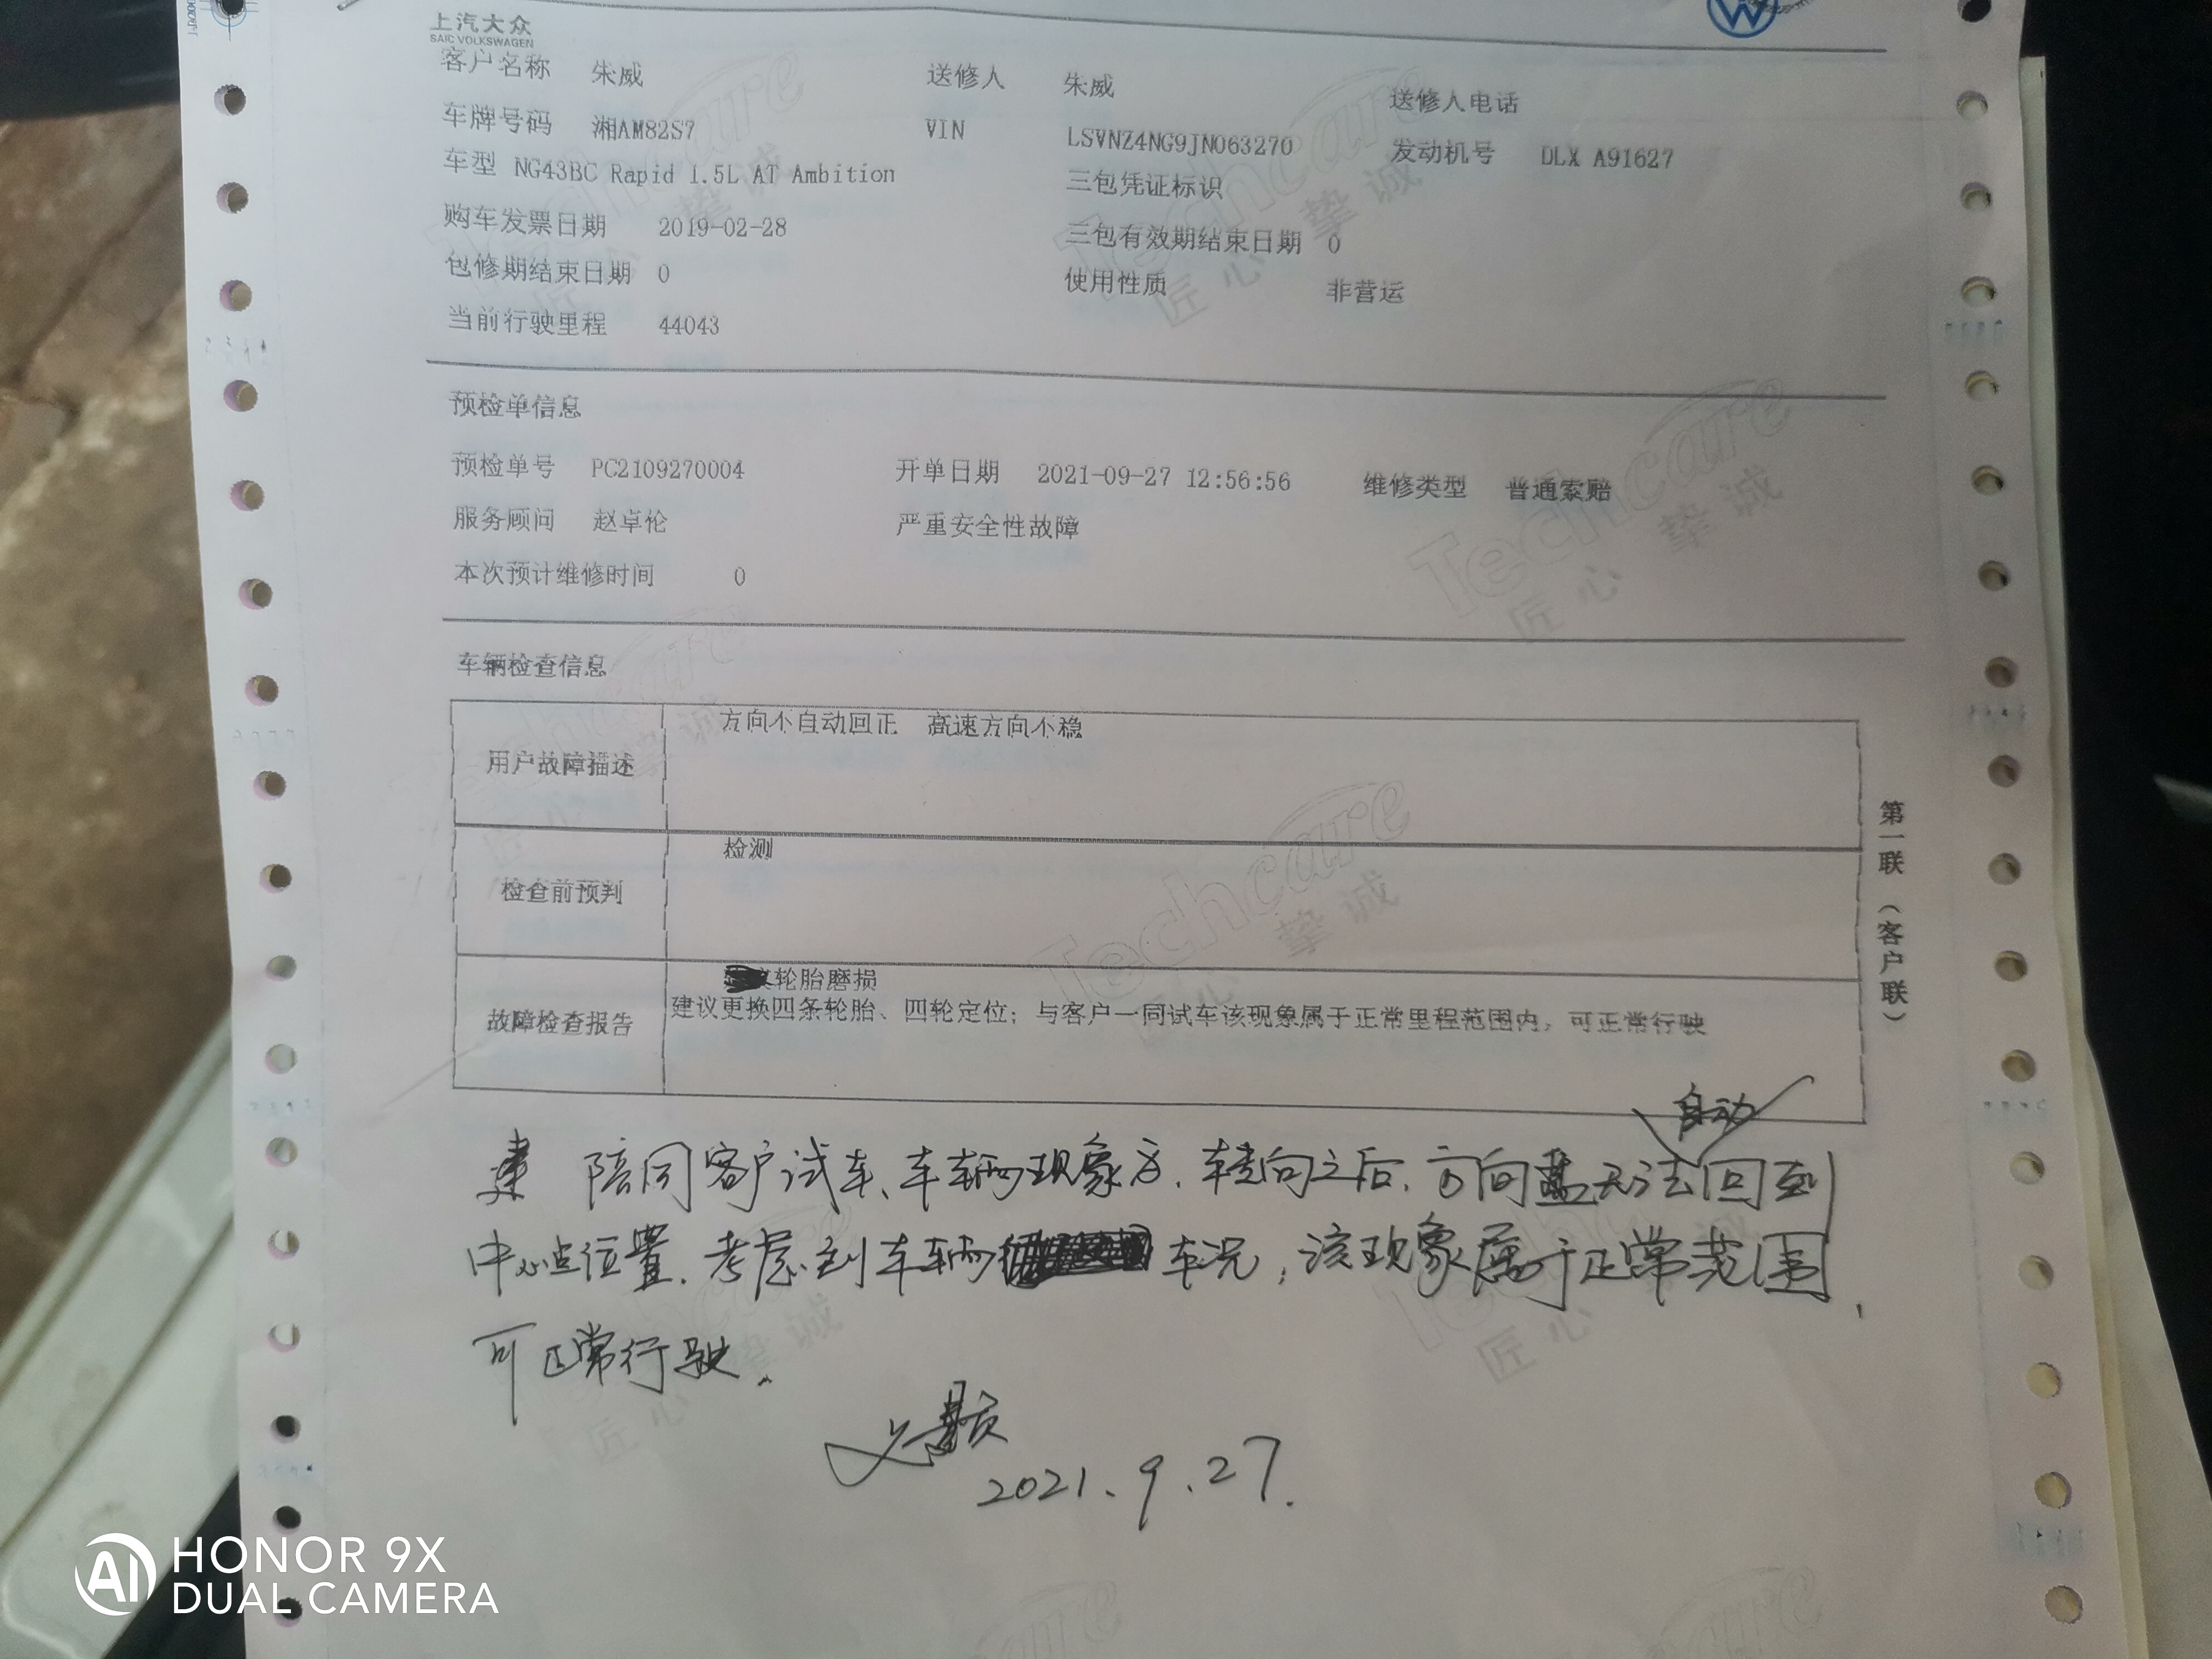 上汽大众
SAIC VOLKSWAGEN
客户名称 朱威 送修人 朱威 送修人电话
车牌号码 湘AM82S7 VIN LSVNZ4NG9JN063270 发动机号 DLX A91627
车型 NG43BC Rapid 1.5L AT Ambition 三包凭证标识
购车发票日期 2019-02-28 三包有效期结束日期 0
包修期结束日期 0 使用性质 非营运
当前行驶里程 44043
预检单信息
预检单号 PC2109270004 开单日期 2021-09-27 12:56:56 维修类型 普通索赔
服务顾问 赵卓伦 严重安全性故障
本次预计维修时间 0
车辆检查信息
用户故障描述 方向不自动回正 高速方向不稳
检查前预判 检测
故障检查报告 轮胎磨损
建议更换四条轮胎、四轮定位；与客户一同试车该现象属于正常里程范围内，可正常行驶
第一联（客户联）
自动
陪同客户试车、车辆现象为，转向之后，方向无法回到
中心点位置，考虑到车辆车况，该现象属于正常范围，
可正常行驶。
2021.9.27.
Techcare
匠心挚诚
HONOR 9X
DUAL CAMERA
AI